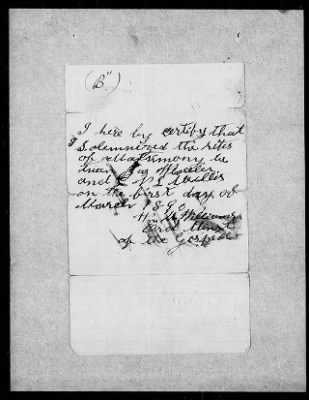 (B")
I here by certify that
I solemnized the rites
of Matrimony be
and L P L Wallis
on the first day of
March 189
Wm Williams
of the Gospel